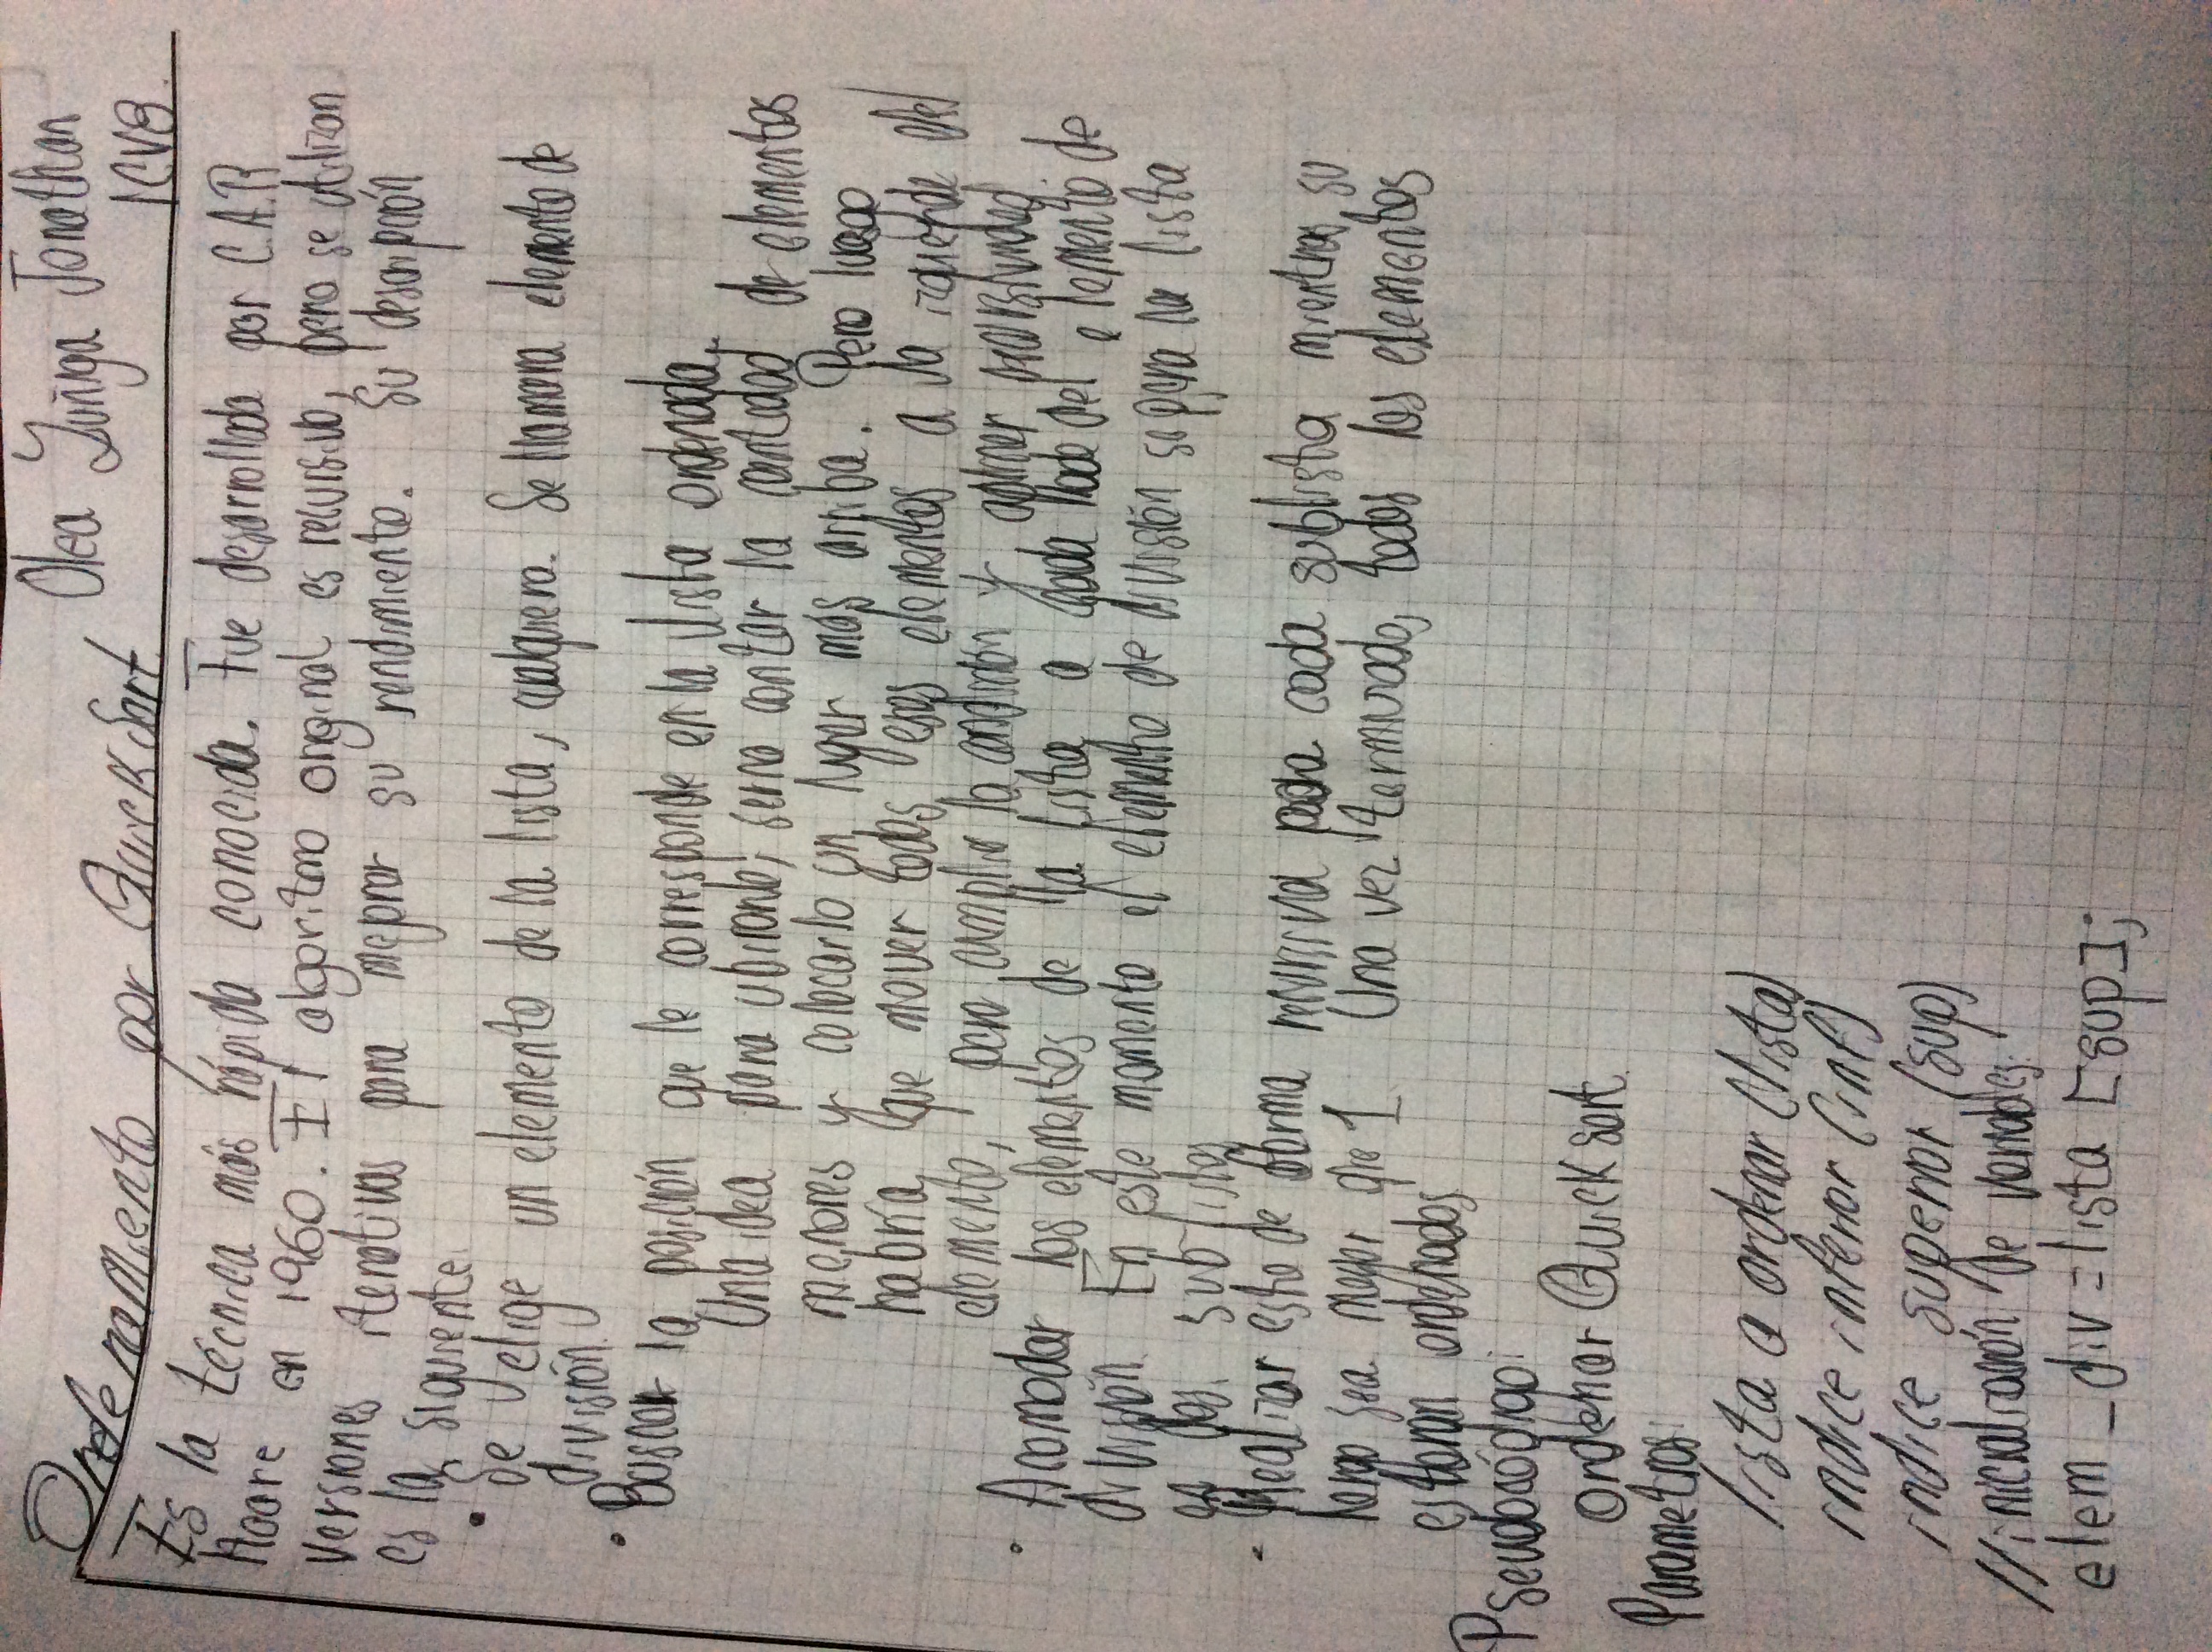 Ordenamiento por QuickSort
Olea Zuñiga Jonathan
1CV8.
Es la técnica más rápida conocida. Fue desarrollada por C.A.R
Hoare en 1960. El algoritmo original es recursivo, pero se utilizan
versiones iterativas para mejorar su rendimiento. Su descripción
es la siguiente:
• Se elige un elemento de la lista, cualquiera. Se llamara elemento de
división.
• Buscar la posición que le corresponde en la lista ordenada.
Una idea para ubicarlo, seria contar la cantidad de elementos
menores y colocarlo un lugar más arriba. Pero luego
habría que mover todos esos elementos a la izquierda del
elemento, para cumplir la condición y aplicar recursividad.
• Acomodar los elementos de la lista a cada lado del elemento de
división. En este momento el elemento de división separa la lista
en dos sublistas
• Realizar esto de forma recursiva para cada sublista mientras su
largo sea mayor que 1 Una vez terminado, todos los elementos
estarán ordenados
Pseudocódigo:
ordenar QuickSort.
Parametros:
lista a ordenar (lista)
indice inferior (inf)
indice superior (sup)
//inicialización de variables.
elem_div = lista [sup];